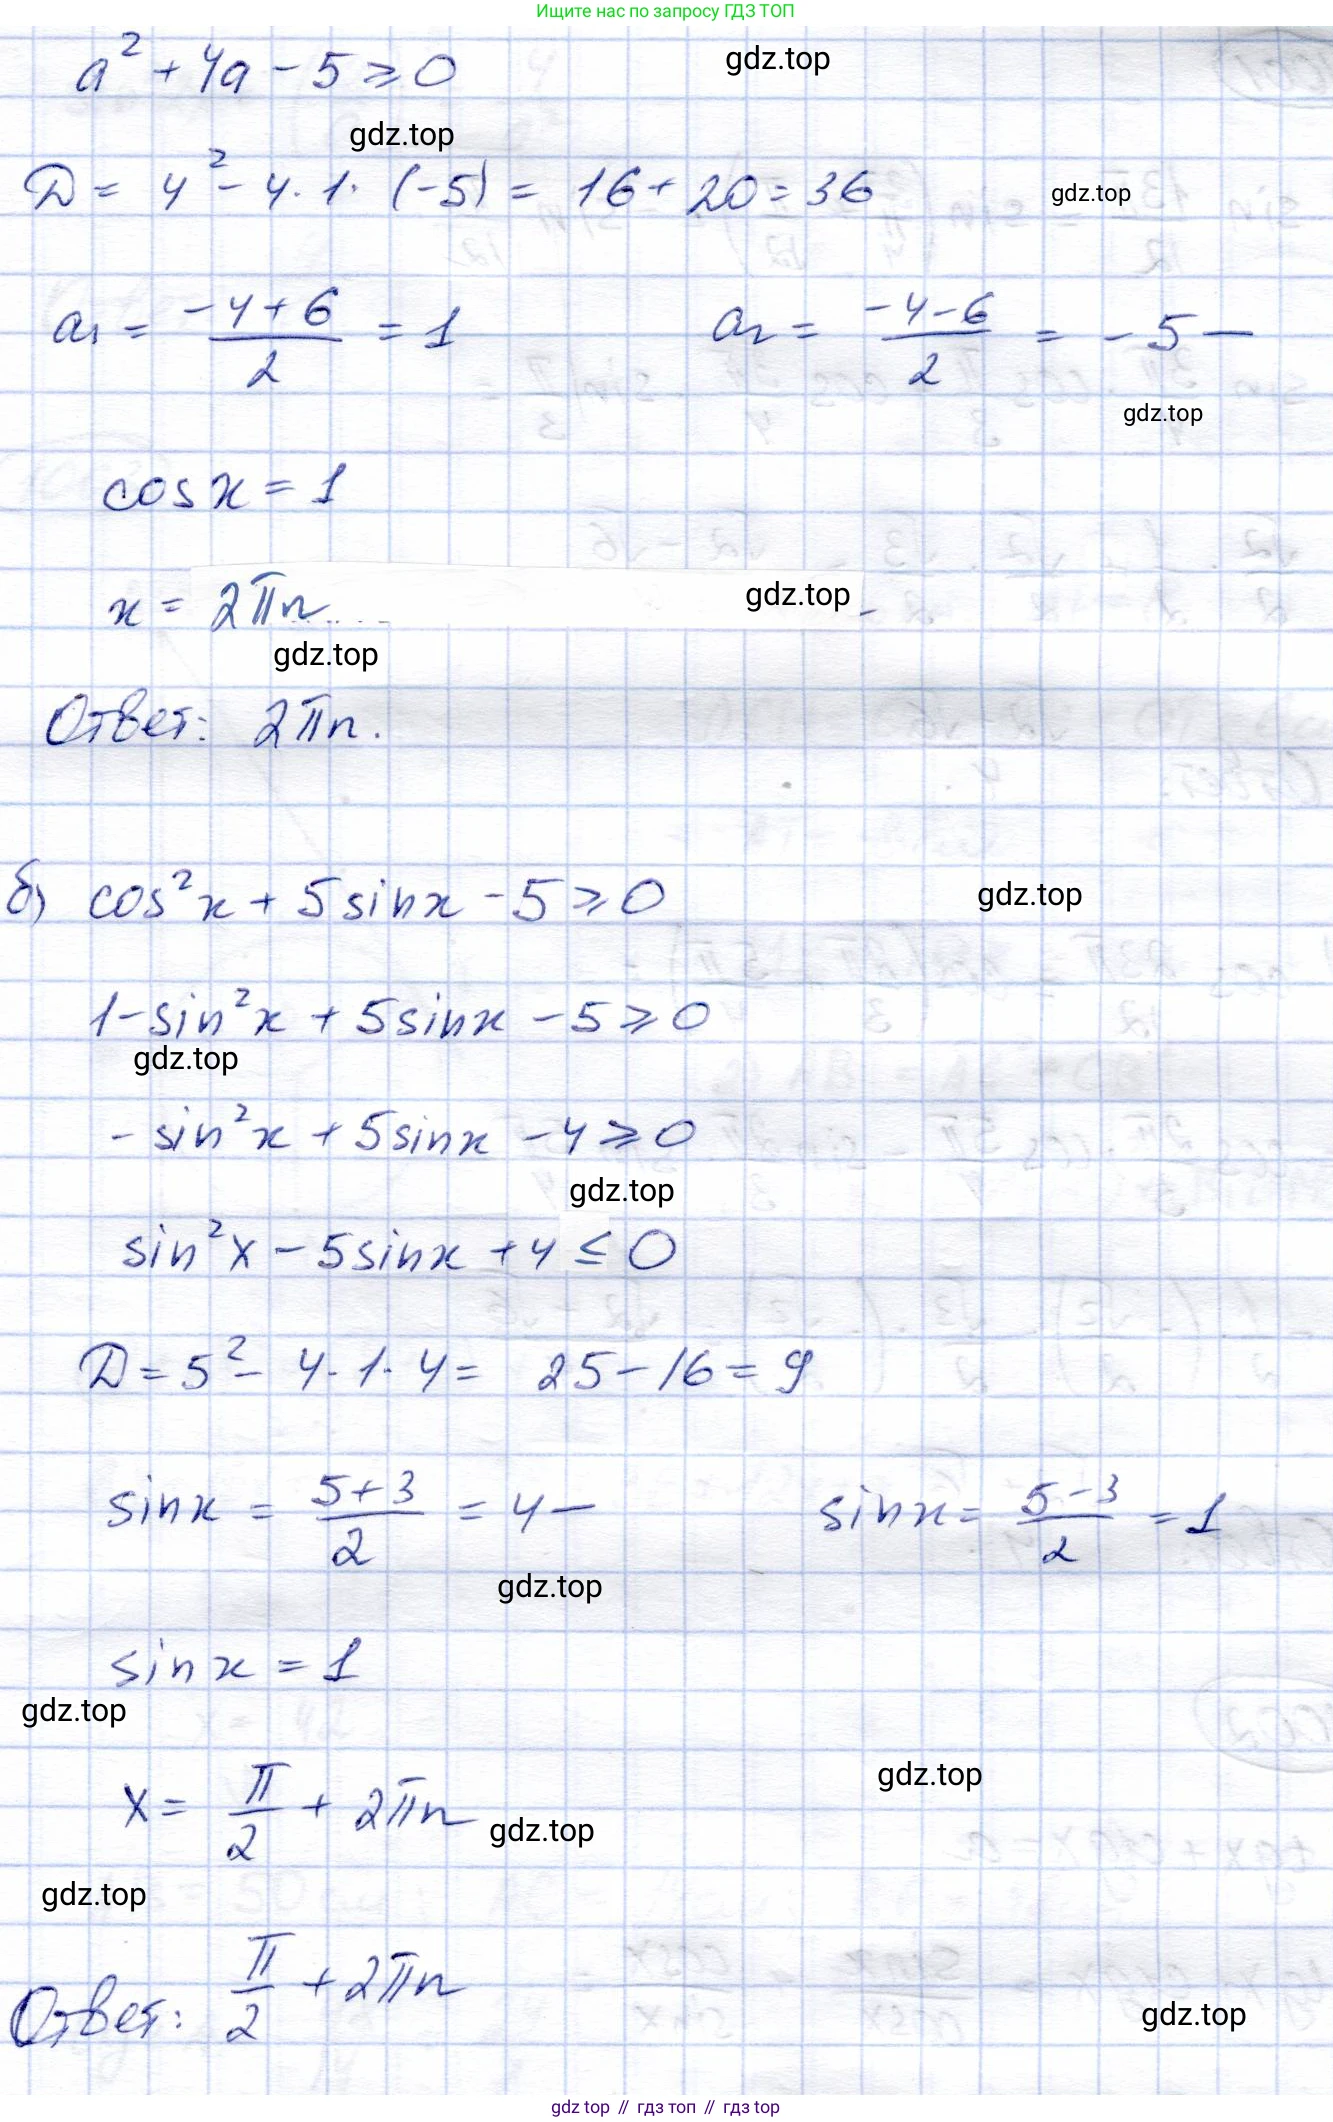 Ищите нас по запросу ГДЗ ТОП
a² + 4a - 5 ⩾ 0
gdz.top
gdz.top
D = 4² - 4 · 1 · (-5) = 16 + 20 = 36
gdz.top
a₁ = (-4 + 6)/2 = 1     a₂ = (-4 - 6)/2 = -5 —
gdz.top
cos x = 1
x = 2πn
gdz.top
gdz.top
Ответ: 2πn.
б) cos²x + 5 sin x - 5 ⩾ 0
gdz.top
1 - sin²x + 5 sin x - 5 ⩾ 0
gdz.top
- sin²x + 5 sin x - 4 ⩾ 0
gdz.top
sin²x - 5 sin x + 4 ≤ 0
D = 5² - 4 · 1 · 4 = 25 - 16 = 9
sin x = (5 + 3)/2 = 4 —     sin x = (5 - 3)/2 = 1
gdz.top
sin x = 1
gdz.top
gdz.top
x = π/2 + 2πn
gdz.top
gdz.top
Ответ: π/2 + 2πn
gdz.top
gdz top // гдз топ // gdz top